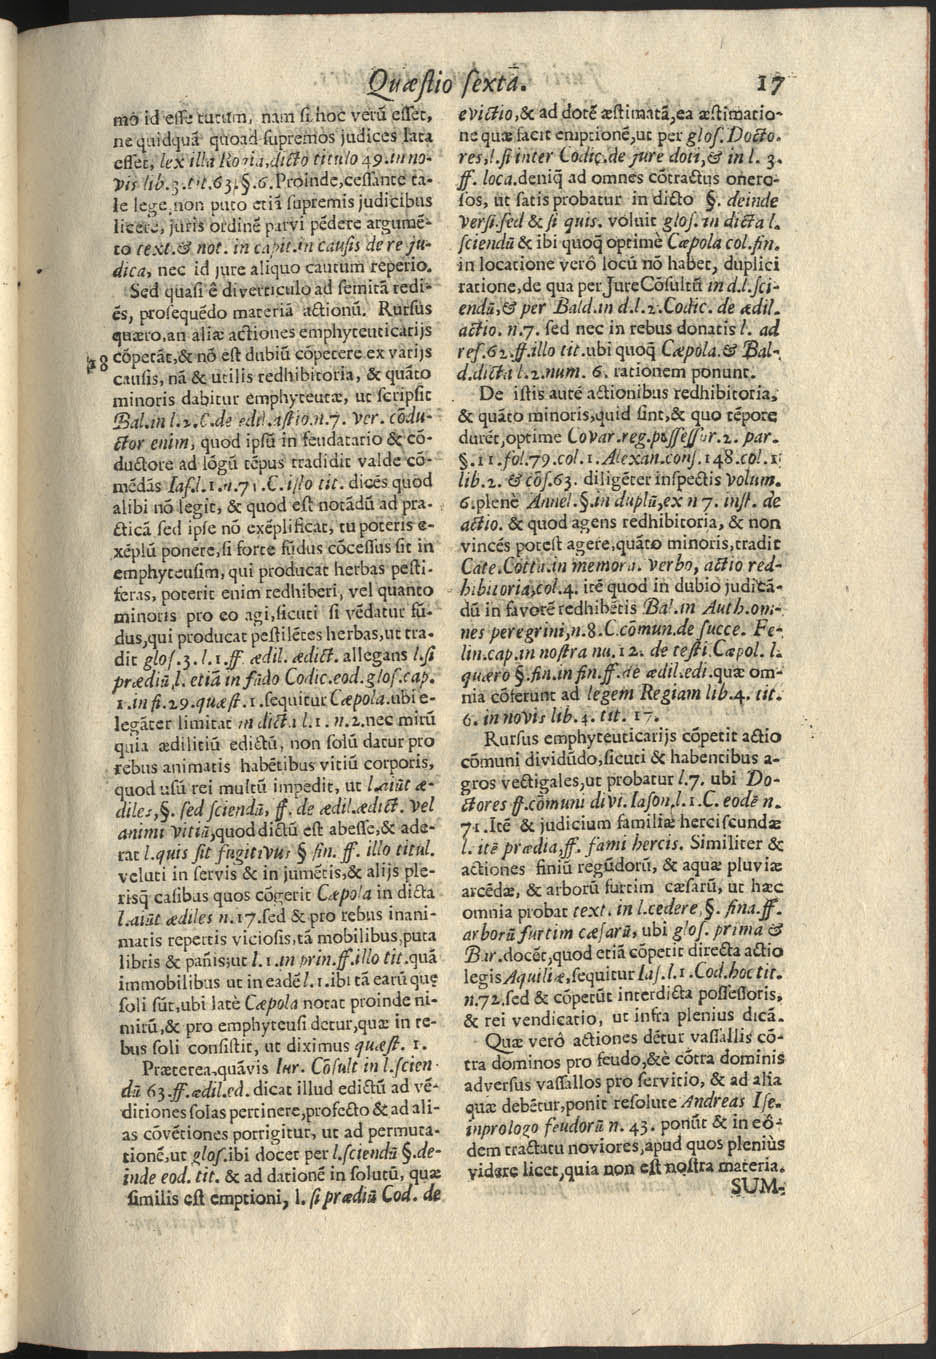 Quæstio sextā.
17
mò id esse tutum, nam si hoc verũ esset,
ne quidquã quoad supremos judices lata
esset, lex illa Regia, dicto titulo 49. in no-
vis lib. 3. tit. 63. §. 6. Proinde, cessante ta-
le lege, non puto etiã supremis judicibus
licere, juris ordinẽ parvi pẽdere argumẽ-
to text. & not. in capit. in causis de re ju-
dica, nec id jure aliquo cautum reperio.
Sed quasi ẽ diverticulo ad semitã redi-
ẽs, prosequẽdo materiã actionũ. Rursus
quæro, an aliæ actiones emphyteuticarijs
28 cõpetãt, & nõ est dubiũ cõpetere ex varijs
causis, nã & utilis redhibitoria, & quãto
minoris dabitur emphyteutæ, ut scripsit
Bal. in l. 2. C. de edil. astio. n. 7. ver. cõdu-
ctor enim, quod ipsũ in feudatario & cõ-
ductore ad lõgũ tẽpus tradidit valde cõ-
mẽdãs Ias. l. 1. n. 71. C. isto tit. dicẽs quod
alibi nõ legit, & quod est notãdũ ad pra-
cticã sed ipse nõ exẽplificat, tu poteris e-
xẽplũ ponere, si forte fũdus cõcessus sit in
emphyteusim, qui producat herbas pesti-
feras, poterit enim redhiberi, vel quanto
minoris pro eo agi, sicuti si vẽdatur fũ-
dus, qui producat pestilẽtes herbas, ut tra-
dit glos. 3. l. 1. ff. ædil. ædict. allegans l. si
prædiũ, l. etiã in fũdo Codic. eod. glos. cap.
1. in fi. 29. quæst. 1. sequitur Cæpola. ubi e-
legãter limitat in dicta l. 1. n. 2. nec mirũ
quia ædilitiũ edictũ, non solũ datur pro
rebus animatis habẽtibus vitiũ corporis,
quod usũ rei multũ impedit, ut l. aiũt æ-
diles, §. sed sciendũ, ff. de ædil. ædict. vel
animi vitiũ, quod dictũ est abesse, & ade-
rat l. quis sit fugitivus § fin. ff. illo titul.
veluti in servis & in jumẽtis, & alijs ple-
risq̃ casibus quos cõgerit Cæpola in dicta
l. aiũt ædiles n. 17. sed & pro rebus inani-
matis repertis viciosis, tã mobilibus, puta
libris & pañis, ut l. 1. in prin. ff. illo tit. quã
immobilibus ut in eadẽ l. 1. ibi tã earũ quę
soli sũt, ubi latè Cæpola notat proinde ni-
mirũ, & pro emphyteusi detur, quæ in re-
bus soli consistit, ut diximus quæst. 1.
Præterea, quãvis Iur. Cõsult in l. scien-
dũ 63. ff. ædil. ed. dicat illud edictũ ad vẽ-
ditiones solas pertinere, profecto & ad ali-
as cõvẽtiones porrigitut, ut ad permuta-
tionẽ, ut glos. ibi docet per l. sciendũ §. de-
inde eod. tit. & ad dationẽ in solutũ, quæ
similis est emptioni, l. si prædiũ Cod. de
evictio, & ad dotẽ æstimatã, ea æstimatio-
ne quæ facit emptionẽ, ut per glos. Docto-
res, l. si inter Codic. de jure doti, & in l. 3.
ff. loca. deniq̃ ad omnes cõtractus onero-
sos, ut satis probatur in dicto §. deinde
versi. sed & si quis. voluit glos. in dicta l.
sciendũ & ibi quoq̃ optimè Cæpola col. fin.
in locatione verò locũ nõ habet, duplici
ratione, de qua per JureCõsultũ in d. l. sci-
endũ, & per Bald. in d. l. 2. Codic. de ædil.
actio. n. 7. sed nec in rebus donatis l. ad
res. 62. ff. illo tit. ubi quoq̃ Cæpola. & Bal-
d. dicta l. 2. num. 6. rationem ponunt.
De istis autẽ actionibus redhibitoria,
& quãto minoris, quid sint, & quo tẽpore
durẽt, optime Covar. reg. possessor. 2. par.
§. 11. fol. 79. col. 1. Alexan. cons. 148. col. 1.
lib. 2. & cõs. 63. diligẽter inspectis volum.
6. plenè Annel. §. in duplũ, ex n 7. inst. de
actio. & quod agens redhibitoria, & non
vincẽs potest agere, quãto minoris, tradit
Cate. Cotta. in memora. verbo, actio red-
hibitoria, col. 4. itẽ quod in dubio judicã-
dũ in favorẽ redhibẽtis Bal. in Auth. om-
nes peregrini, n. 8. C. cõmun. de succe. Fe-
lin. cap. in nostra nu. 12. de testi. Cæpol. l.
quæro §. fin. in fin. ff. de ædil. edi. quæ om-
nia cõferunt ad legem Regiam lib. 4. tit.
6. in novis lib. 4. tit. 17.
Rursus emphyteuticarijs cõpetit actio
cõmuni dividũdo, sicuti & habentibus a-
gros vectigales, ut probatur l. 7. ubi Do-
ctores ff. cõmuni divi. Iason, l. 1. C. eodẽ n.
71. Itẽ & judicium familiæ herciscundæ
l. itẽ prædia, ff. fami hercis. Similiter &
actiones finiũ regũdorũ, & aquæ pluviæ
arcẽdæ, & arborũ furtim cæsarũ, ut hæc
omnia probat text. in l. cedere, §. fina. ff.
arborũ furtim cæsarũ, ubi glos. prima &
Bar. docẽt, quod etiã cõpetit directa actio
legis Aquiliæ, sequitur Ias. l. 1. Cod. hoc tit.
n. 72. sed & cõpetũt interdicta possessoris,
& rei vendicatio, ut infra plenius dicã.
Quæ verò actiones dẽtur vasſallis cõ-
tra dominos pro feudo, & è cõtra dominis
adversus vassallos pro servitio, & ad alia
quæ debẽtur, ponit resolutè Andreas Ise.
in prologo feudorũ n. 43. ponũt & in eõ-
dem tractatu noviores, apud quos pleniùs
videre licet, quia non est nostra materia.
SUM-